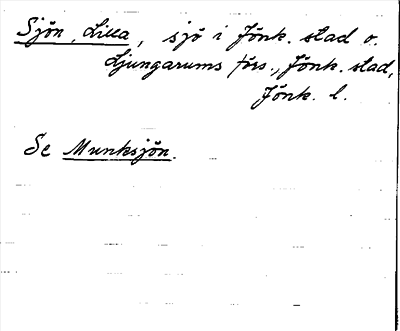 Sjön, Lilla, sjö i Jönk. stad o.
Ljungarums förs., Jönk. stad,
Jönk. l.
Se Munksjön.